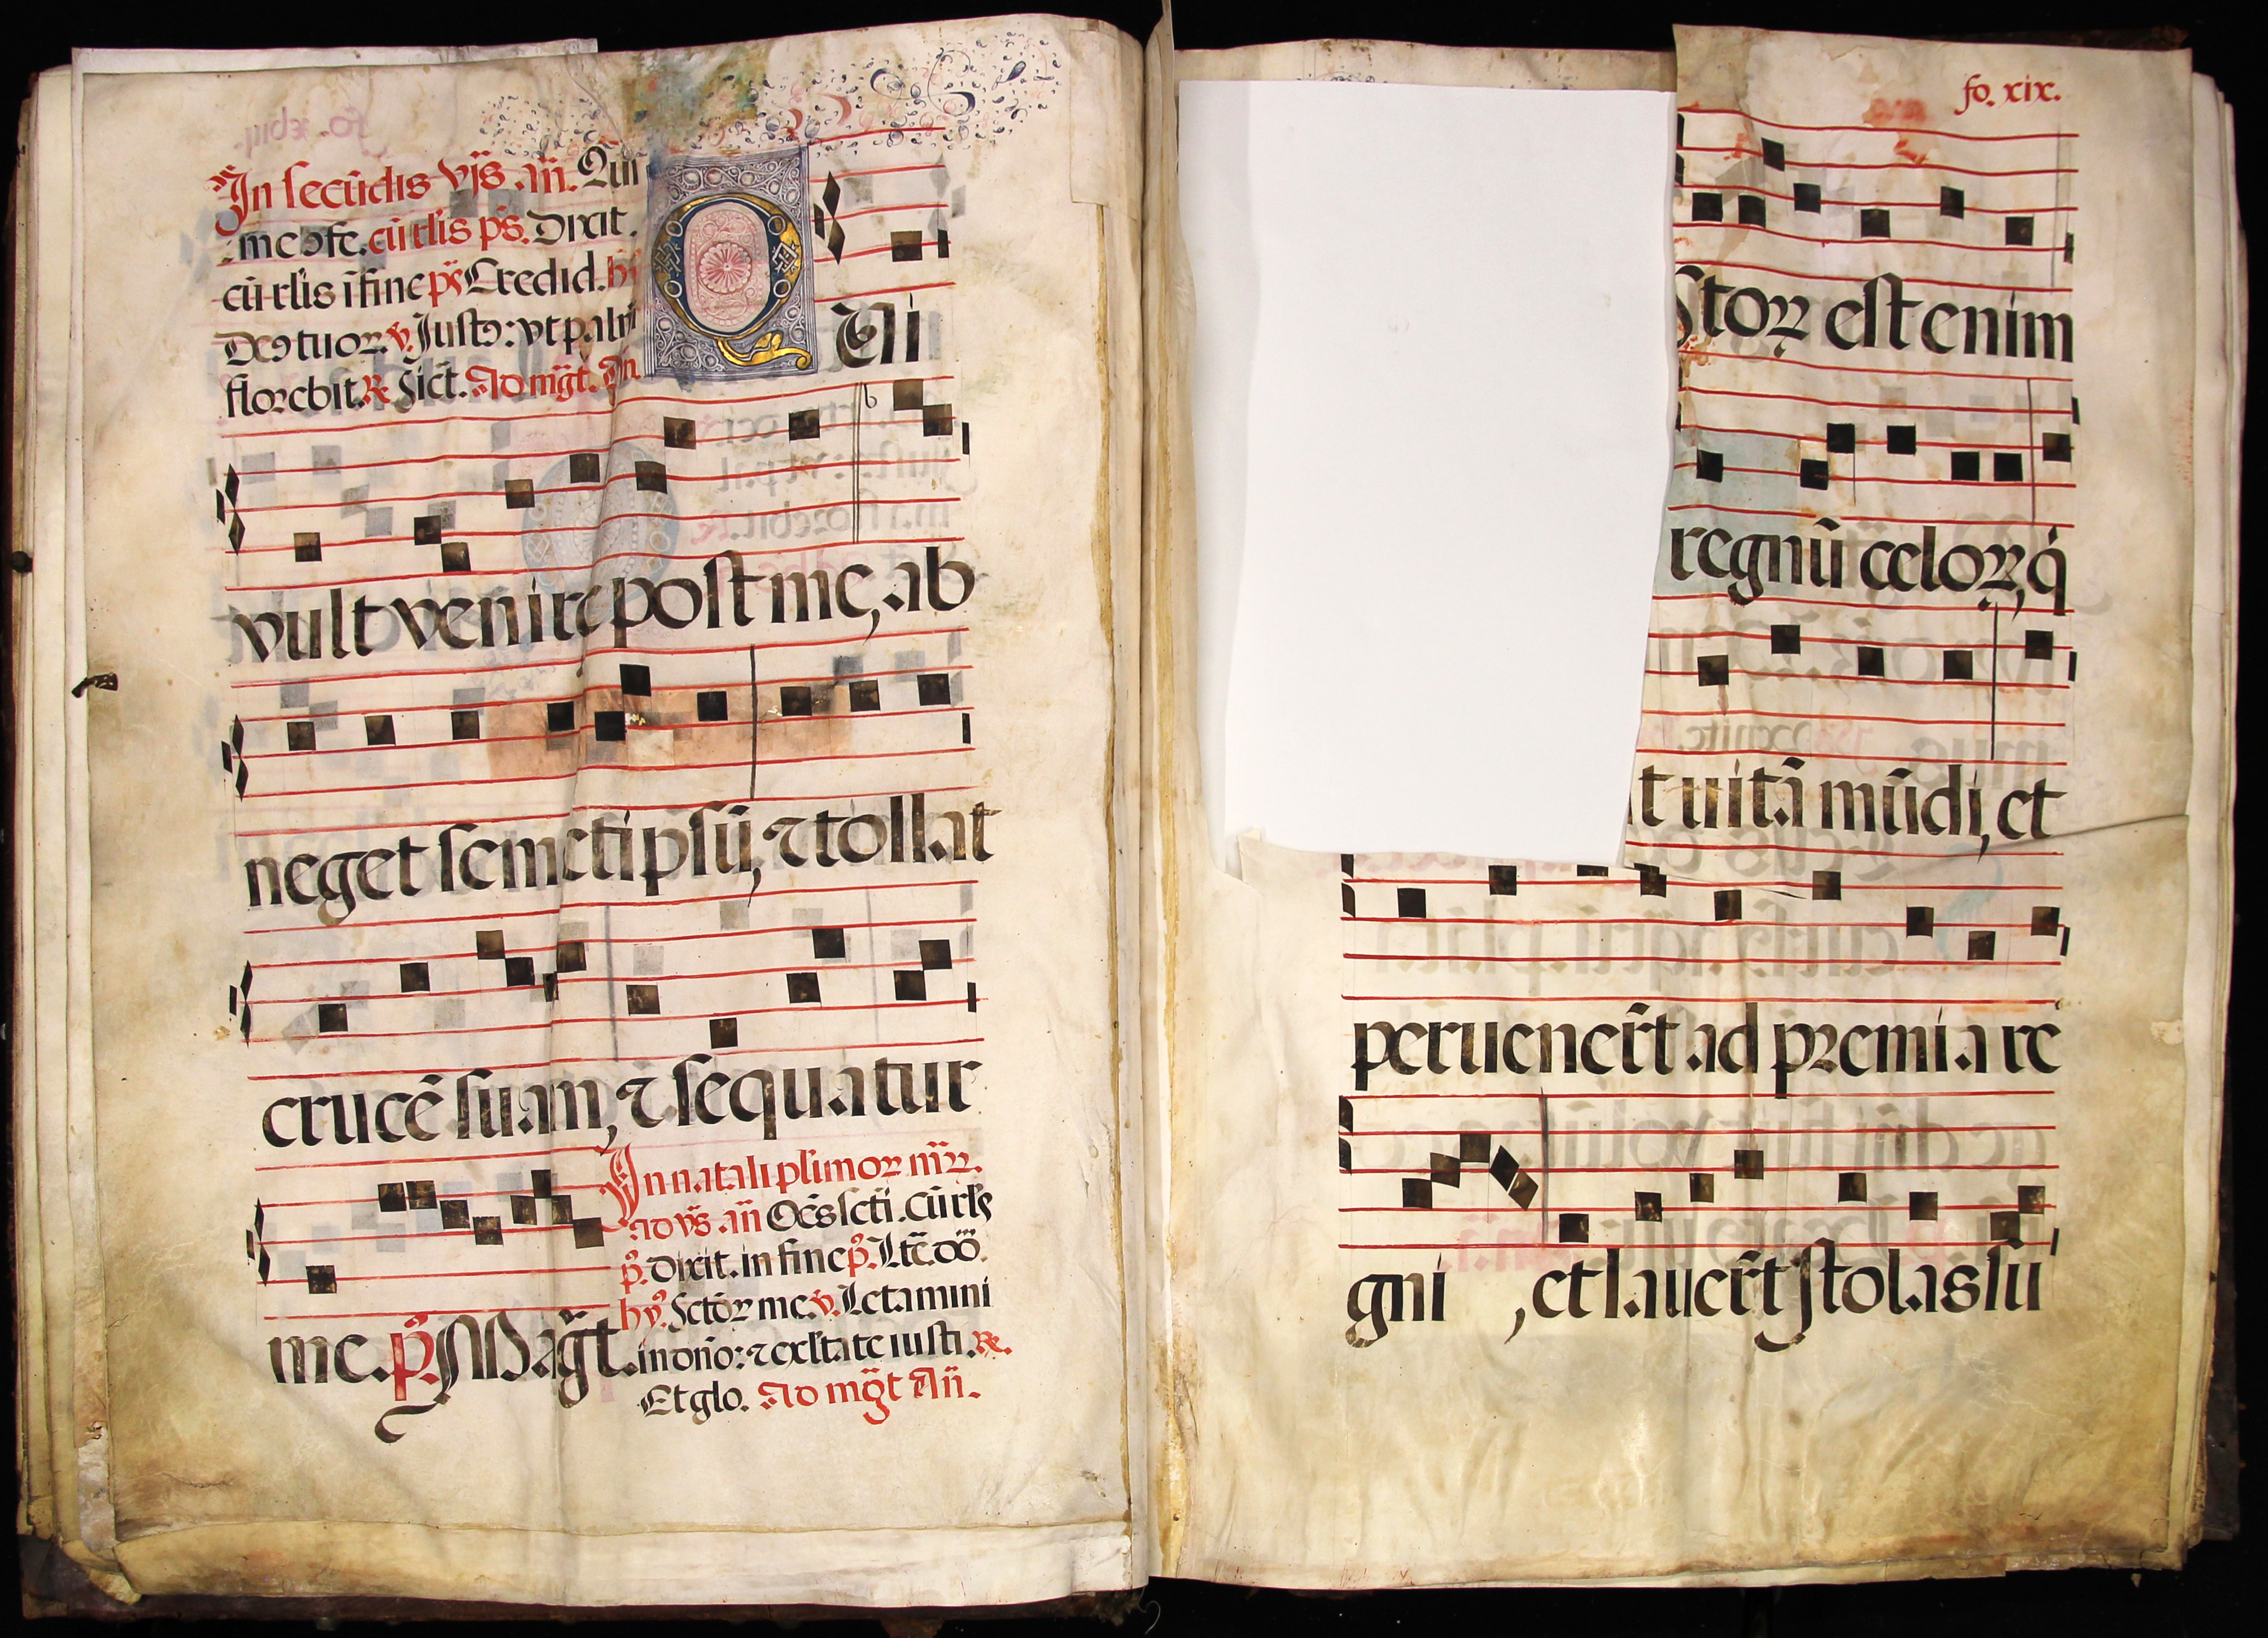 In secūdis vṗs. añ. Qui
me ↄfe. cū rl̄is ps. Dixit.
cū rl̄is ī fine ps Credid. hy
Deꝯ tuoꝝ. v. Justꝯ: vt palm
florebit. ℟. Sic̄t. Ad mḡt. Añ.
QUi
vult venire post me, ab
neget semetipsū, ⁊ tollat
crucē suam, ⁊ sequatur
me. p̄. Mag̃t.
In natali pl̄imoꝝ mr̄ꝝ.
ad vs̄. añ Oēs scti. Cū rl̄s
p̄. Dixit. in fine p̄. Ltē. dō.
hy̾. Sctōꝝ me. v. Letamini
in dnō: ⁊ exl̄tate iusti. ℟.
Et glo. Ad mḡt Añ.
fo. xix.
stoꝝ est enim
regnū celoꝝ, q̇
t uitā mūdi, et
peruener̄t ad premia re
gni, et lauer̄t stolas su